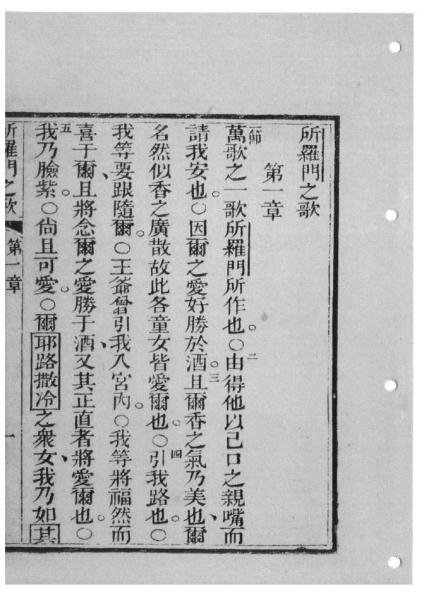 所羅門之歌
第一章
一節萬歌之一歌所羅門所作也。〇二由得他以己口之親嘴而
請我安也。〇因爾之愛好勝於酒。三且爾香之氣乃美也、爾
名然似香之廣散故此各童女皆愛爾也。〇四引我路也。〇
我等要、跟隨爾。〇王爺曾引我入宮內。〇我等將福然而
喜于爾且將念爾之愛勝于酒、又其正直者將愛爾也。〇
五我乃臉紫。〇尙且可愛。〇爾耶路撒冷之衆女、我乃如其
所羅門之歌 第一章 一